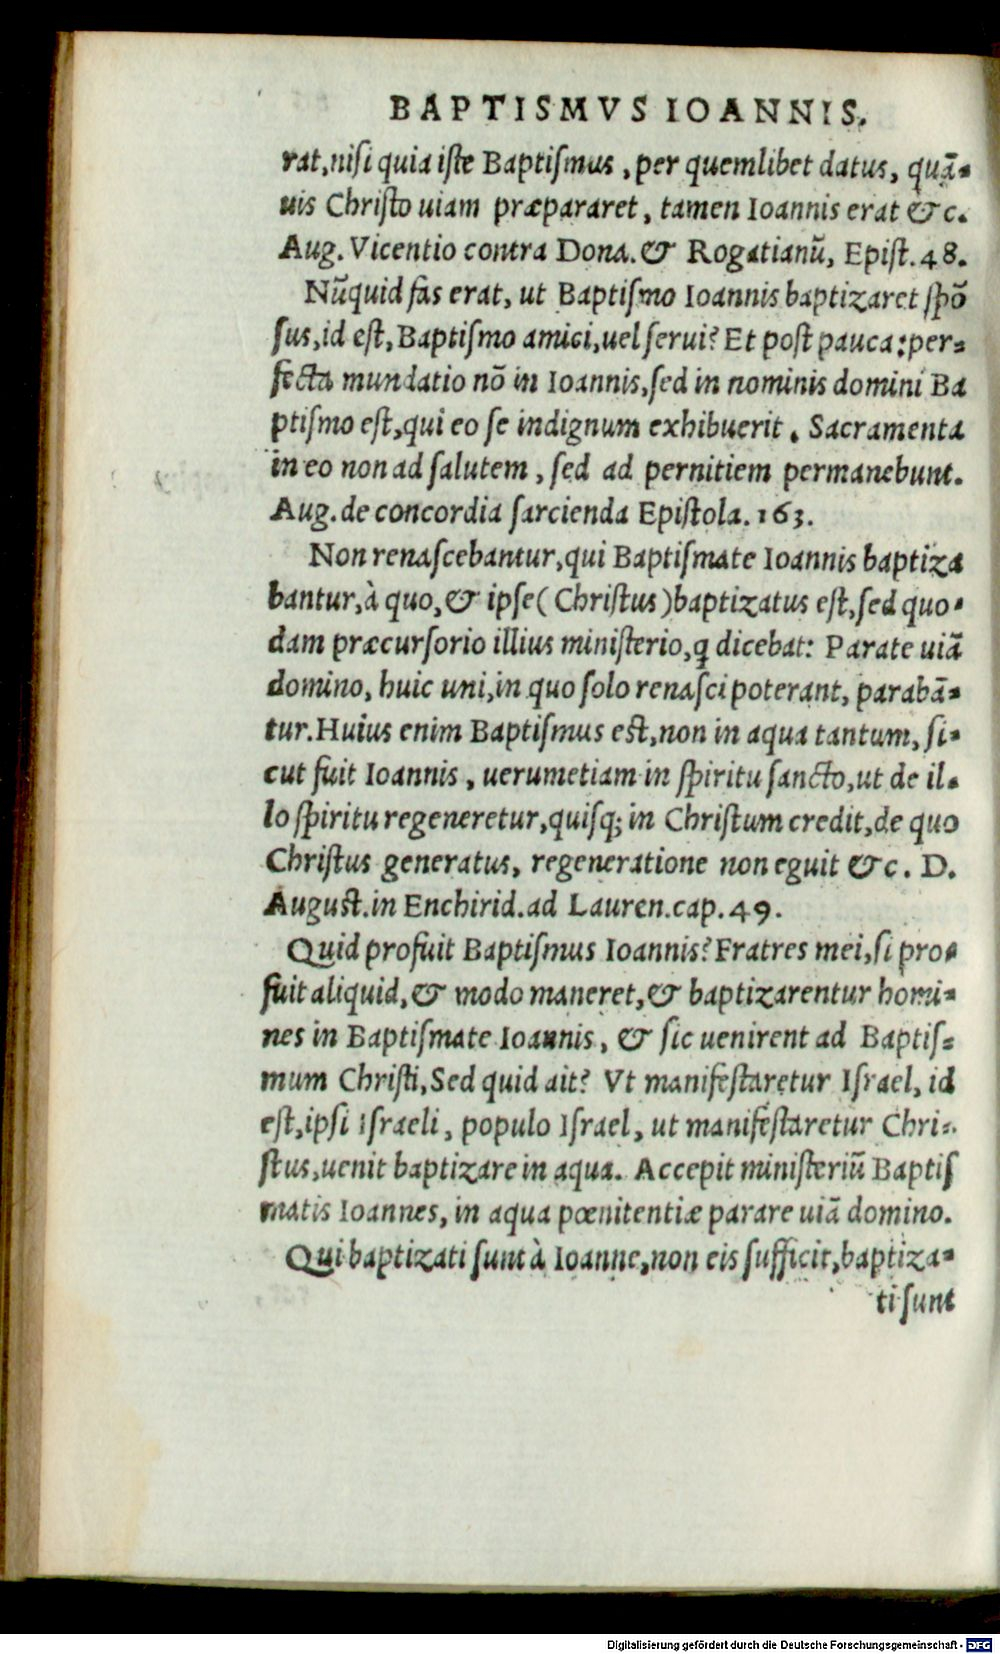 BAPTISMVS IOANNIS.
rat, nisi quia iste Baptismus, per quemlibet datus, quã-
uis Christo uiam præpararet, tamen Ioannis erat &c.
Aug. Vicentio contra Dona. & Rogatianũ, Epist. 48.
Nũquid fas erat, ut Baptismo Ioannis baptizaret spõ
sus, id est, Baptismo amici, uel serui? Et post pauca: per-
fecta mundatio nõ in Ioannis, sed in nominis domini Ba
ptismo est, qui eo se indignum exhibuerit. Sacramenta
in eo non ad salutem, sed ad pernitiem permanebunt.
Aug. de concordia sarcienda Epistola. 163.
Non renascebantur, qui Baptismate Ioannis baptiza
bantur, à quo, & ipse (Christus) baptizatus est, sed quo-
dam præcursorio illius ministerio, q̃ dicebat: Parate uiã
domino, huic uni, in quo solo renasci poterant, parabã-
tur. Huius enim Baptismus est, non in aqua tantum, si-
cut fuit Ioannis, uerumetiam in spiritu sancto, ut de il-
lo spiritu regeneretur, quisq; in Christum credit, de quo
Christus generatus, regeneratione non eguit &c. D.
August. in Enchirid. ad Lauren. cap. 49.
Quid profuit Baptismus Ioannis? Fratres mei, si pro-
fuit aliquid, & modo maneret, & baptizarentur homi-
nes in Baptismate Ioannis, & sic uenirent ad Baptis-
mum Christi, Sed quid ait? Vt manifestaretur Israel, id
est, ipsi Israeli, populo Israel, ut manifestaretur Chri-
stus, uenit baptizare in aqua. Accepit ministeriũ Baptis
matis Ioannes, in aqua pœnitentiæ parare uiã domino.
Qui baptizati sunt à Ioanne, non eis sufficit, baptiza-
ti sunt
Digitalisierung gefördert durch die Deutsche Forschungsgemeinschaft - DFG